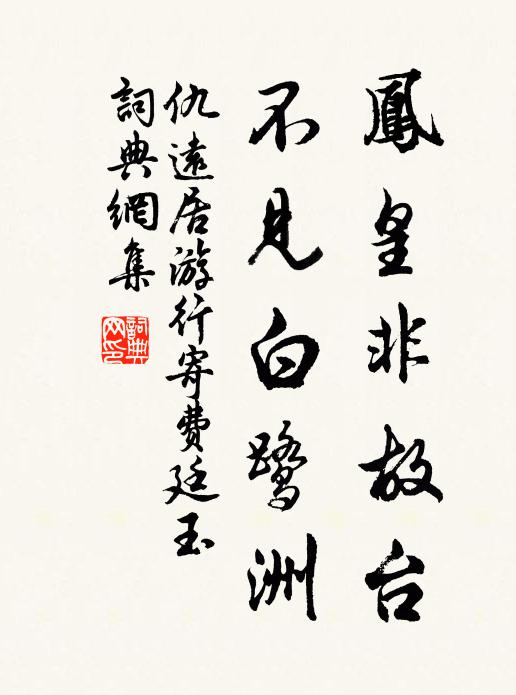 鳳皇非故台
不見白鷺洲
仇遠居游行寄費廷玉
詞典網集
詞典网印